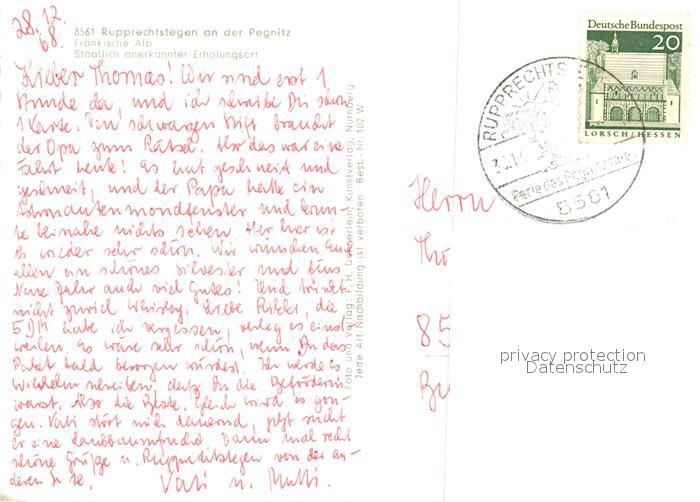 28.12.
68.
8561 Rupprechtstegen an der Pegnitz
Fränkische Alb
Staatlich anerkannter Erholungsort
Lieber Thomas! Wir sind erst 1
Stunde da, und ich schreibe Dir schon
1 Karte. Den schwarzen Stift braucht
der Opa zum Rätsel. Aber das war eine
Fahrt heute! Es hat geschneit und
geschneit, und der Papa hatte ein
Astronautenmondfenster und konn-
te beinahe nichts sehen. Aber hier ist
es wieder sehr schön. Wir wünschen Euch
allen ein schönes Silvester und fürs
Neue Jahr auch viel Gutes! Und trinkt
nicht zuviel Whisky. Liebe die
5 DM habe ich vergessen, einst
weilen. Es wäre sehr schön, wenn Du das
Paket bald besorgen würdest. Ich werde es
Wilhelm schreiben, daß Du die
warst. Also die Beste. Gleich wird es
gen. Vati stört mich dauernd, jetzt sucht
er eine Dann mal recht
schöne Grüße v. Rupprechtstegen von der an-
deren Seite. Vati u. Mutti.
Foto und Verlag: H. Kunstverlag, Nürnberg
Jede Art Nachbildung ist verboten Best.-Nr. 102 W
Deutsche Bundespost
20
LORSCH/HESSEN
RUPPRECHTS
Perle des Pegnitztales
8561
Herrn
Tho
85
privacy protection
Datenschutz